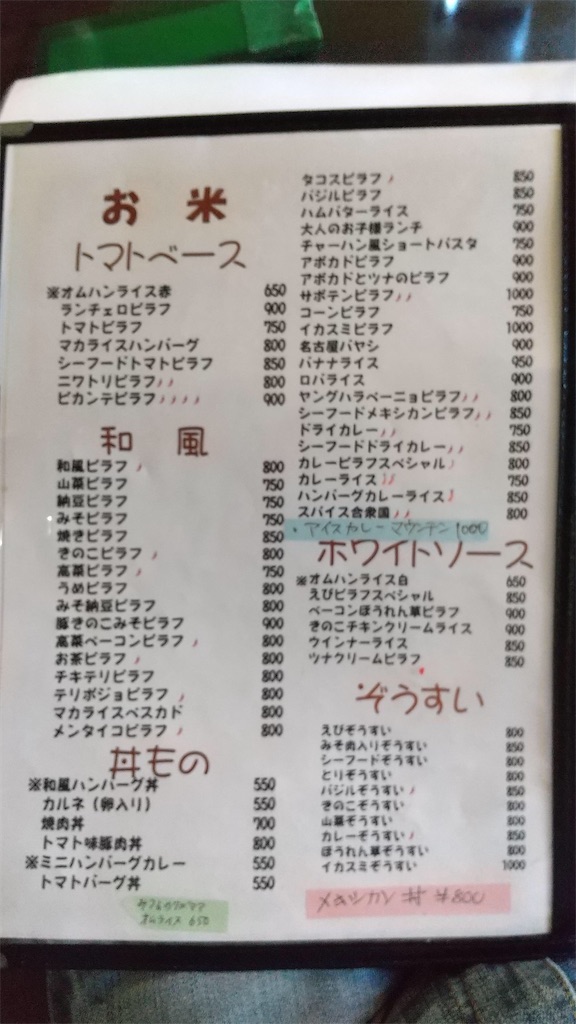 お 米
トマトベース
※オムハンライス赤 650
ランチェロピラフ 900
トマトピラフ 750
マカライスハンバーグ 800
シーフードトマトピラフ 850
ニワトリピラフ 800
ピカンテピラフ 900
和 風
和風ピラフ 800
山菜ピラフ 750
納豆ピラフ 750
みそピラフ 750
焼きピラフ 850
きのこピラフ 800
高菜ピラフ 750
うめピラフ 800
みそ納豆ピラフ 800
豚きのこみそピラフ 900
高菜ベーコンピラフ 800
お茶ピラフ 800
チキテリピラフ 800
テリポジョピラフ 800
マカライスペスカド 800
メンタイコピラフ 800
丼もの
※和風ハンバーグ丼 550
カルネ(卵入り) 550
焼肉丼 700
トマト味豚肉丼 800
※ミニハンバーグカレー 550
トマトバーグ丼 550
オムライス 650
タコスピラフ 850
バジルピラフ 850
ハムバターライス 750
大人のお子様ランチ 900
チャーハン風ショートパスタ 750
アボカドピラフ 900
アボカドとツナのピラフ 900
サボテンピラフ 1000
コーンピラフ 750
イカスミピラフ 1000
名古屋バヤシ 900
バナナライス 950
ロバライス 900
ヤングハラペーニョピラフ 800
シーフードメキシカンピラフ 850
ドライカレー 750
シーフードドライカレー 850
カレーピラフスペシャル 800
カレーライス 750
ハンバーグカレーライス 850
スパイス合衆国 800
・アイスカレーマウンテン 1000
ホワイトソース
※オムハンライス白 650
えびピラフスペシャル 850
ベーコンほうれん草ピラフ 900
きのこチキンクリームライス 900
ウインナーライス 850
ツナクリームピラフ 850
ぞうすい
えびぞうすい 800
みそ肉入りぞうすい 850
シーフードぞうすい 800
とりぞうすい 800
バジルぞうすい 850
きのこぞうすい 800
山菜ぞうすい 800
カレーぞうすい 850
ほうれん草ぞうすい 800
イカスミぞうすい 1000
メキシカン丼 ¥800